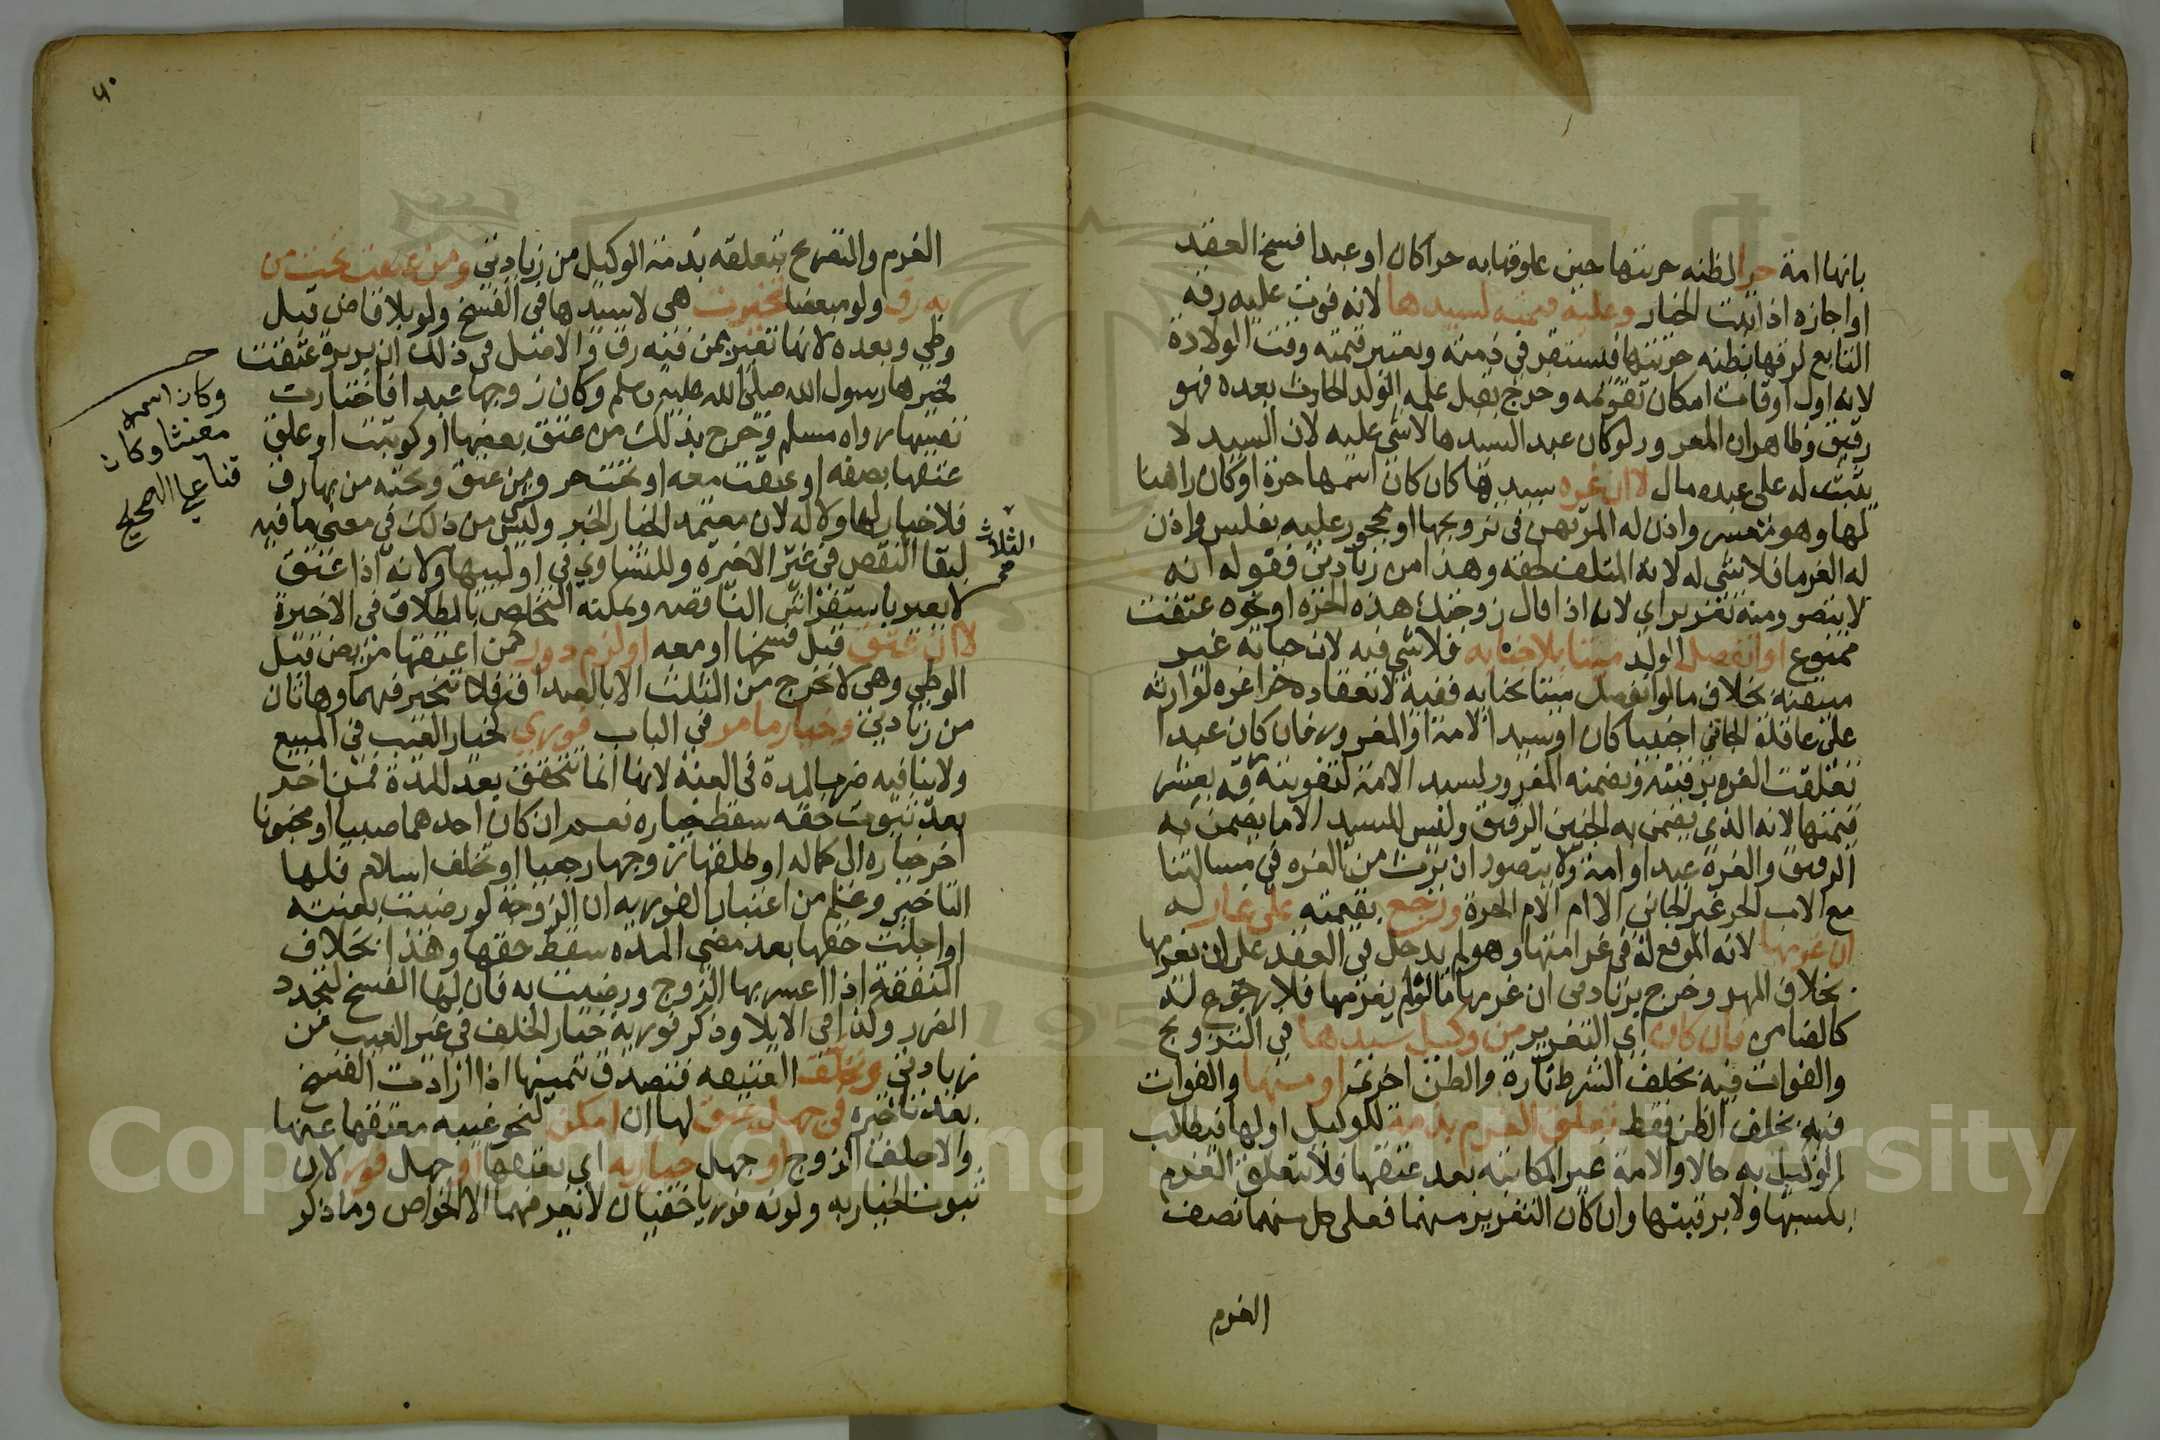 بانها امة حرا لظنه حريتها حين علوقها به حرا كان او عبدا فسخ العقد
او اجازه اذا ثبت الخيار وعليه قيمته لسيدها لانه فوت عليه رقه
التابع لرقها بظنه حريتها فتستقر في ذمته وتعتبر قيمته وقت الولادة
لانه اول اوقات امكان تقويمه وخرج بقبل علمه الولد الحادث بعده فهو
رقيق وظاهر ان المغرور لو كان عبد السيدها لا شي عليه لان السيد لا
يثبت له على عبده مال لا ان غره سيدها كان كان اسمها حرة او كان راهنا
لها وهو معسر واذن له المرتهن في تزويجها او محجور عليه بفلس واذن
له الغرما فلا شي له لانه المتلف لحقه وهذا من زيادتي فقوله انه
لا يتصور منه تغرير اي لانه اذا قال زوجتك هذه الحرة او نحوه عتقت
ممنوع او انفصل الولد ميتا بلا جناية فلا شي فيه لان حياته غير
متيقنة بخلاف ما لو انفصل ميتا بجناية ففيه لانعقاده حرا غرة لوارثه
على عاقلة الجاني اجنبيا كان او سيد الامة او المغرور فان كان عبدا
تعلقت الغرة برقبته ويضمنه المغرور لسيد الامة لتفويته رقه بعشر
قيمتها لانه الذي يضمن به الجنين الرقيق وليس للسيد الا ما يضمن به
الرقيق والغرة عبد او امة ولا يتصور ان يرث من الغرة في مسالتنا
مع الاب الحر غير الجاني الا ام الام الحرة ورجع بقيمته على غار له
ان غرمها لانه الموقع له في غرامتها وهو لم يدخل في العقد على ان يغرمها
بخلاف المهر وخرج بزيادتي ان غرمها ما لو لم يغرمها فلا رجوع له
كالضامن فان كان اي التغرير من وكيل سيدها في التزويج
والفوات فيه بخلف الشرط تارة والظن اخرى او منها والفوات
فيه بخلف الظن فقط تعلق الغرم بذمته للوكيل او لها فيطالب
الوكيل به حالا والامة غير المكاتبة بعد عتقها فلا يتعلق الغرم
بكسبها ولا برقبتها وان كان التغرير منهما فعلى كل منهما نصف
الغرم
الغرم والتصريح بتعلقه بذمة الوكيل من زيادتي ومن عتقت تحت من
به رق ولو مبعضا تخيرت هي لا سيدها في الفسخ ولو بلا قاض قبل
وطي وبعده لانها تعير بمن فيه رق والاصل في ذلك ان بريرة عتقت
فخيرها رسول الله صلى الله عليه وسلم وكان زوجها عبدا فاختارت
نفسها رواه مسلم وخرج بذلك من عتق بعضها او كوتبت او علق
عتقها بصفة او عتقت معه او تحت حر ومن عتق وتحته من بها رق
فلا خيار لها ولا له لان معتمد الخيار الخبر وليس من ذلك في معنى ما فيه
لبقا النقص في غير الاخيرة وللتساوي في اوليها ولانه اذا عتق
لا يعير باستفراش الناقصة ويمكنه التخلص بالطلاق في الاخيرة
لا ان عتق قبل فسخها او معه او لزم دور كمن اعتقها مريض قبل
الوطي وهي لا تخرج من الثلث الا بالصداق فلا تتخير فيهما وهاتان
من زيادتي وخيار ما مر في الباب فوري كخيار العيب في المبيع
ولا ينافيه ضرب المدة في العنة لانها انما تتحقق بعد المدة فمن اخر
بعد ثبوت حقه سقط خياره نعم ان كان احدهما صبيا او مجنونا
اخر خياره الى كماله او طلقها زوجها رجعيا او تخلف اسلام فلها
التاخير وعلم من اعتبار الفورية ان الزوجة لو رضيت بعنته
او اجلت حقها بعد مضي المدة سقط حقها وهذا بخلاف
النفقة اذا اعسر بها الزوج ورضيت به فان لها الفسخ لتجدد
الضرر ولذا في الايلا وذكر فورية خيار الخلف في غير العيب من
زيادتي وتحلف العتيقة فتصدق بيمينها اذا ارادت الفسخ
بعد تاخيره في جهل عتق لها ان امكن لنحو غيبة معتقها عنها
والا حلف الزوج او جهل خيار به اي بعتقها او جهل فور لان
ثبوت الخيار به وكونه فوريا خفيان لا يعرفهما الا الخواص وما ذكر
الثلاث
صح
وكان اسمه
مغيثا وكان
قنا على الصحيح